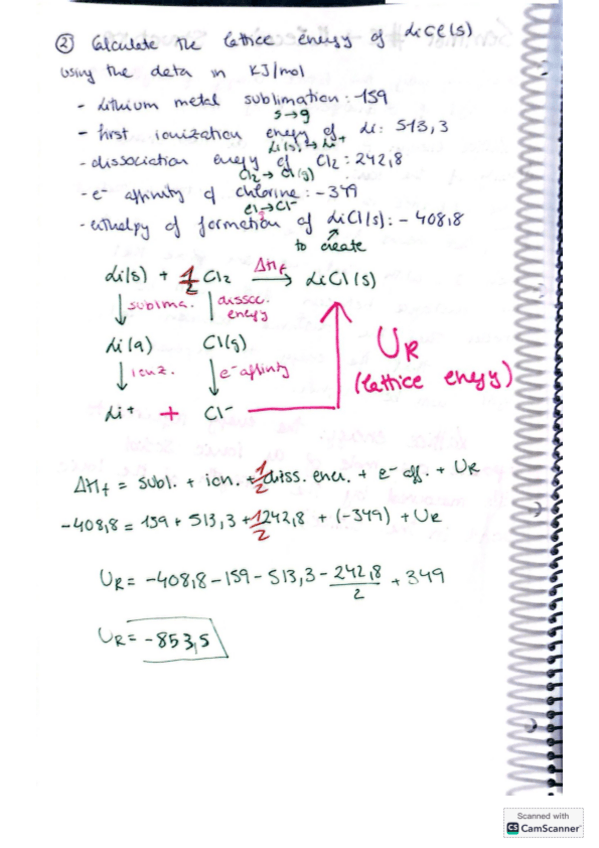 ② Calculate the lattice energy of LiCl(s)
using the data in KJ/mol
- Lithium metal sublimation: 159
s→g
- first ionization energy of Li: 513,3
Li(s)→Li+
- dissociation energy of Cl2: 242,8
Cl2→Cl(g)
- e- affinity of chlorine: -349
Cl→Cl-
- enthalpy of formation of LiCl(s): -408,8
to create
Li(s) + 1/2 Cl2 ΔHf → LiCl(s)
↓ sublima. | dissoc. energy
Li(g) Cl(g)
↓ ioniz. ↓ e- affinity
Li+ + Cl-
UR
(lattice energy)
ΔHf = subl. + ion. + 1/2 diss. ener. + e- aff. + UR
-408,8 = 159 + 513,3 + 1/2 242,8 + (-349) + UR
UR = -408,8 - 159 - 513,3 - 242,8/2 + 349
UR = -853,5
Scanned with
CS CamScanner